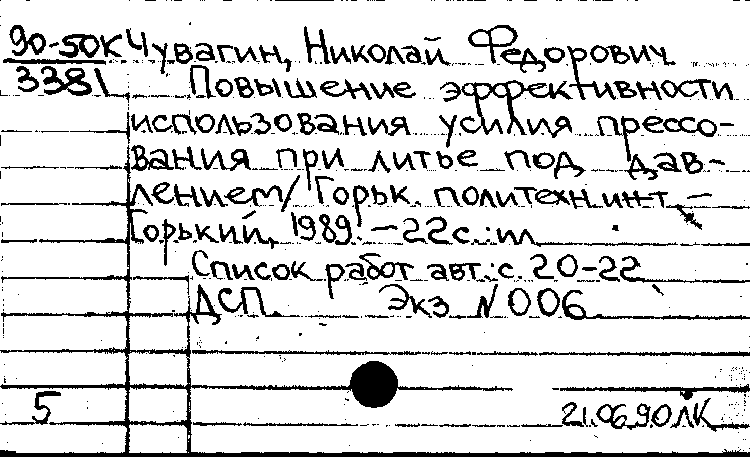 90-50К Чувагин, Николай Федорович
3381 Повышение эффективности
использования усилия прессо-
вания при литье под дав-
лением/ Горьк. политехн.ин-т. –
Горький, 1989. – 22с.:ил
Список работ авт.: с. 20-22
ДСП. Экз N 006
5 21.06.90 ЛК